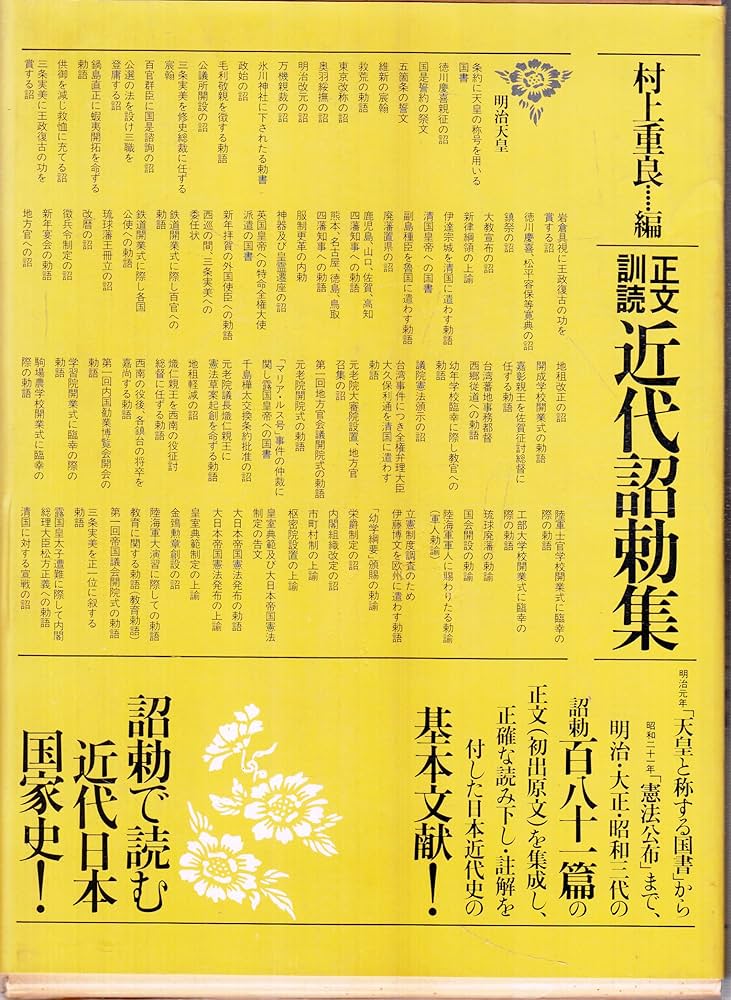 村上重良……編
正文
訓読
近代詔勅集
明治天皇
条約に天皇の称号を用いる
国書
徳川慶喜親征の詔
国是誓約の祭文
五箇条の誓文
維新の宸翰
救荒の勅語
東京改称の詔
奥羽綏撫の詔
明治改元の詔
万機親裁の詔
氷川神社に下されたる勅書
政始の詔
毛利敬親を徴する勅語
公議所開設の詔
三条実美を修史総裁に任ずる
宸翰
百官群臣に国是諮詢の詔
公選の法を設け三職を
登庸する詔
鍋島直正に蝦夷開拓を命ずる
勅語
供御を減じ救恤に充てる詔
三条実美に王政復古の功を
賞する詔
岩倉具視に王政復古の功を
賞する詔
徳川慶喜、松平容保等寛典の詔
鎮祭の詔
大教宣布の詔
新律綱領の上諭
伊達宗城を清国に遣わす勅語
清国皇帝への国書
副島種臣を魯国に遣わす勅語
廃藩置県の詔
鹿児島、山口、佐賀、高知
四藩知事への勅語
熊本、名古屋、徳島、鳥取
四藩知事への勅語
服制更革の内勅
神器及び皇霊遷座の詔
英国皇帝への特命全権大使
派遣の国書
新年拝賀の外国使臣への勅語
西巡の間、三条実美への
委任状
鉄道開業式に際し百官への
勅語
鉄道開業式に際し各国
公使への勅語
琉球藩王冊立の詔
改暦の詔
徴兵令制定の詔
新年宴会の勅語
地方官への詔
地租改正の詔
開成学校開業式の勅語
嘉彰親王を佐賀征討総督に
任ずる勅語
台湾蕃地事務都督
西郷従道への勅語
幼年学校臨幸に際し教官への
勅語
議院憲法頒示の詔
台湾事件につき全権弁理大臣
大久保利通を清国に遣わす
勅語
元老院大審院設置、地方官
召集の詔
第一回地方官会議開院式の勅語
元老院開院式の勅語
「マリア・ルス号」事件の仲裁に
関し露国皇帝への国書
千島樺太交換条約批准の詔
元老院議長熾仁親王に
憲法草案起創を命ずる勅語
地租軽減の詔
熾仁親王を西南の役征討
総督に任ずる勅語
西南の役後、各鎮台の将卒を
嘉尚する勅語
第一回内国勧業博覧会開会の
勅語
学習院開業式に臨幸の際の
勅語
駒場農学校開業式に臨幸の
際の勅語
陸軍士官学校開業式に臨幸の
際の勅語
工部大学校開業式に臨幸の
際の勅語
琉球廃藩の勅諭
国会開設の勅諭
陸海軍軍人に賜わりたる勅諭
(軍人勅諭)
立憲制度調査のため
伊藤博文を欧州に遣わす勅語
「幼学綱要」頒賜の勅諭
栄爵制定の詔
内閣組織改定の詔
市町村制の上諭
枢密院設置の上諭
皇室典範及び大日本帝国憲法
制定の告文
大日本帝国憲法発布の勅語
大日本帝国憲法発布の上諭
皇室典範制定の上諭
金鵄勲章創設の詔
陸海軍大演習に際しての勅語
教育に関する勅語(教育勅語)
第一回帝国議会開院式の勅語
三条実美を正一位に叙する
勅語
露国皇太子遭難に際して内閣
総理大臣松方正義への勅語
清国に対する宣戦の詔
明治元年「天皇と称する国書」から
昭和二十一年「憲法公布」まで、
明治・大正・昭和三代の
詔勅百八十一篇の
正文(初出原文)を集成し、
正確な読み下し・註解を
付した日本近代史の
基本文献!
詔勅で読む
近代日本
国家史!